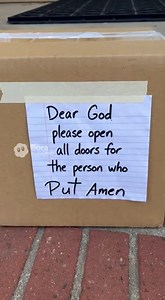 Dear God
please open
all doors for
the person who
Put Amen